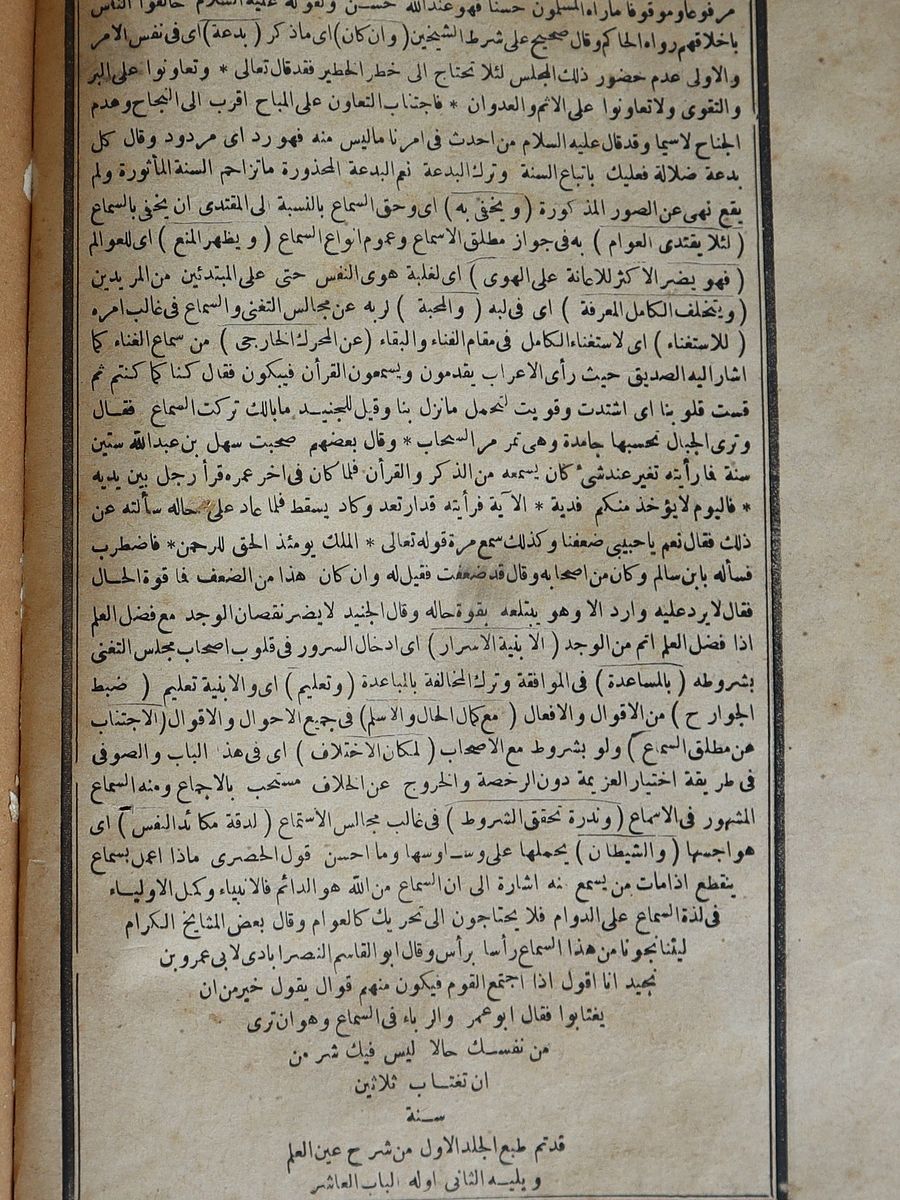 مرفوعا وموقوفا ماراه المسلمون حسنا فهو عند الله حسن ولقوله عليه السلام خالقوا الناس
باخلاقهم رواه الحاكم وقال صحيح على شرط الشيخين (وان كان) اى ماذكر (بدعة) اى فى نفس الامر
والاولى عدم حضور ذلك المجلس لئلا تحتاج الى خطر الخطير فقد قال تعالى * وتعاونوا على البر
والتقوى ولا تعاونوا على الاثم والعدوان * فاجتناب التعاون على المباح اقرب الى النجاح وهدم
الجناح لاسيما وقد قال عليه السلام من احدث فى امرنا ماليس منه فهو رد اى مردود وقال كل
بدعة ضلالة فعليك باتباع السنة وترك البدعة نعم البدعة المحذورة ماتزاحم السنة المأثورة ولم
يقع نهى عن الصور المذكورة (ويخفى به) اى وحق السماع بالنسبة الى المقتدى ان يخفى بالسماع
(لئلا يقتدى العوام) به فى جواز مطلق الاسماع وعموم انواع السماع (ويظهر المنع) اى للعوالم
(فهو يضر الاكثر للاعانة على الهوى) اى لغلبة هوى النفس حتى على المبتدئين من المريدين
(ويتخلف الكامل المعرفة) اى فى لبه (والمحبة) لربه عن مجالس التغنى والسماع فى غالب امره
(للاستغناء) اى لاستغناء الكامل فى مقام الفناء والبقاء (عن المحرك الخارجى) من سماع الغناء كما
اشار اليه الصديق حيث رأى الاعراب يقدمون ويسمعون القرأن فيبكون فقال كنا كما كنتم ثم
قست قلوبنا اى اشتدت وقويت لتحمل مانزل بنا وقيل للجنيد مابالك تركت السماع فقال
وترى الجبال تحسبها جامدة وهى تمر مر السحاب * وقال بعضهم صحبت سهل بن عبدالله ستين
سنة فما رأيته تغير عند شئ كان يسمعه من الذكر والقرأن فلما كان فى اخر عمره قرأ رجل بين يديه
* فاليوم لايؤخذ منكم فدية * الآية فرأيته قد ارتعد وكاد يسقط فلما عاد على حاله سألته عن
ذلك فقال نعم ياحبيبى ضعفنا وكذلك سمع مرة قوله تعالى * الملك يومئذ الحق للرحمن * فاضطرب
فسأله بابن سالم وكان من اصحابه وقال قد ضعفت فقيل له وان كان هذا من الضعف فما قوة الحال
فقال لايرد عليه وارد الا وهو يبتلعه بقوة حاله وقال الجنيد لايضر نقصان الوجد مع فضل العلم
اذا فضل العلم اتم من الوجد (الا بنية الاسرار) اى ادخال السرور فى قلوب اصحاب مجلس التغنى
بشروطه (بالمساعدة) فى الموافقة وترك المخالفة بالمباعدة (وتعليم) اى والابنية تعليم (ضبط
الجوارح) من الاقوال والافعال (مع كمال الحال والاسلم) فى جميع الاحوال والاقوال (الاجتناب
عن مطلق السماع) ولو بشروط مع الاصحاب (لمكان الاختلاف) اى فى هذا الباب والصوفى
فى طريقة اختيار العزيمة دون الرخصة والخروج عن الخلاف مستحب بالاجماع ومنه السماع
المشهور فى الاسماع (وندرة تحقق الشروط) فى غالب مجالس الاستماع (لدقة مكائد النفس) اى
هواجسها (والشيطان) يحملها على وساوسها وما احسن قول الحصرى ماذا اعمل بسماع
ينقطع اذامات من يسمع منه اشارة الى ان السماع من الله هو الدائم فالانبياء وكمل الاولياء
فى لذة السماع على الدوام فلا يحتاجون الى تحريك كالعوام وقال بعض المشايخ الكرام
ليتنا نجونا من هذا السماع رأسا برأس وقال ابو القاسم النصرابادى لابى عمرو بن
نجيد انا اقول اذا اجتمع القوم فيكون منهم قوال يقول خير من ان
يغتابوا فقال ابو عمر والرياء فى السماع وهو ان ترى
من نفسك حالا ليس فيك شر من
ان تغتاب ثلاثين
سنة
قدتم طبع الجلد الاول من شرح عين العلم
ويليه الثانى اوله الباب العاشر